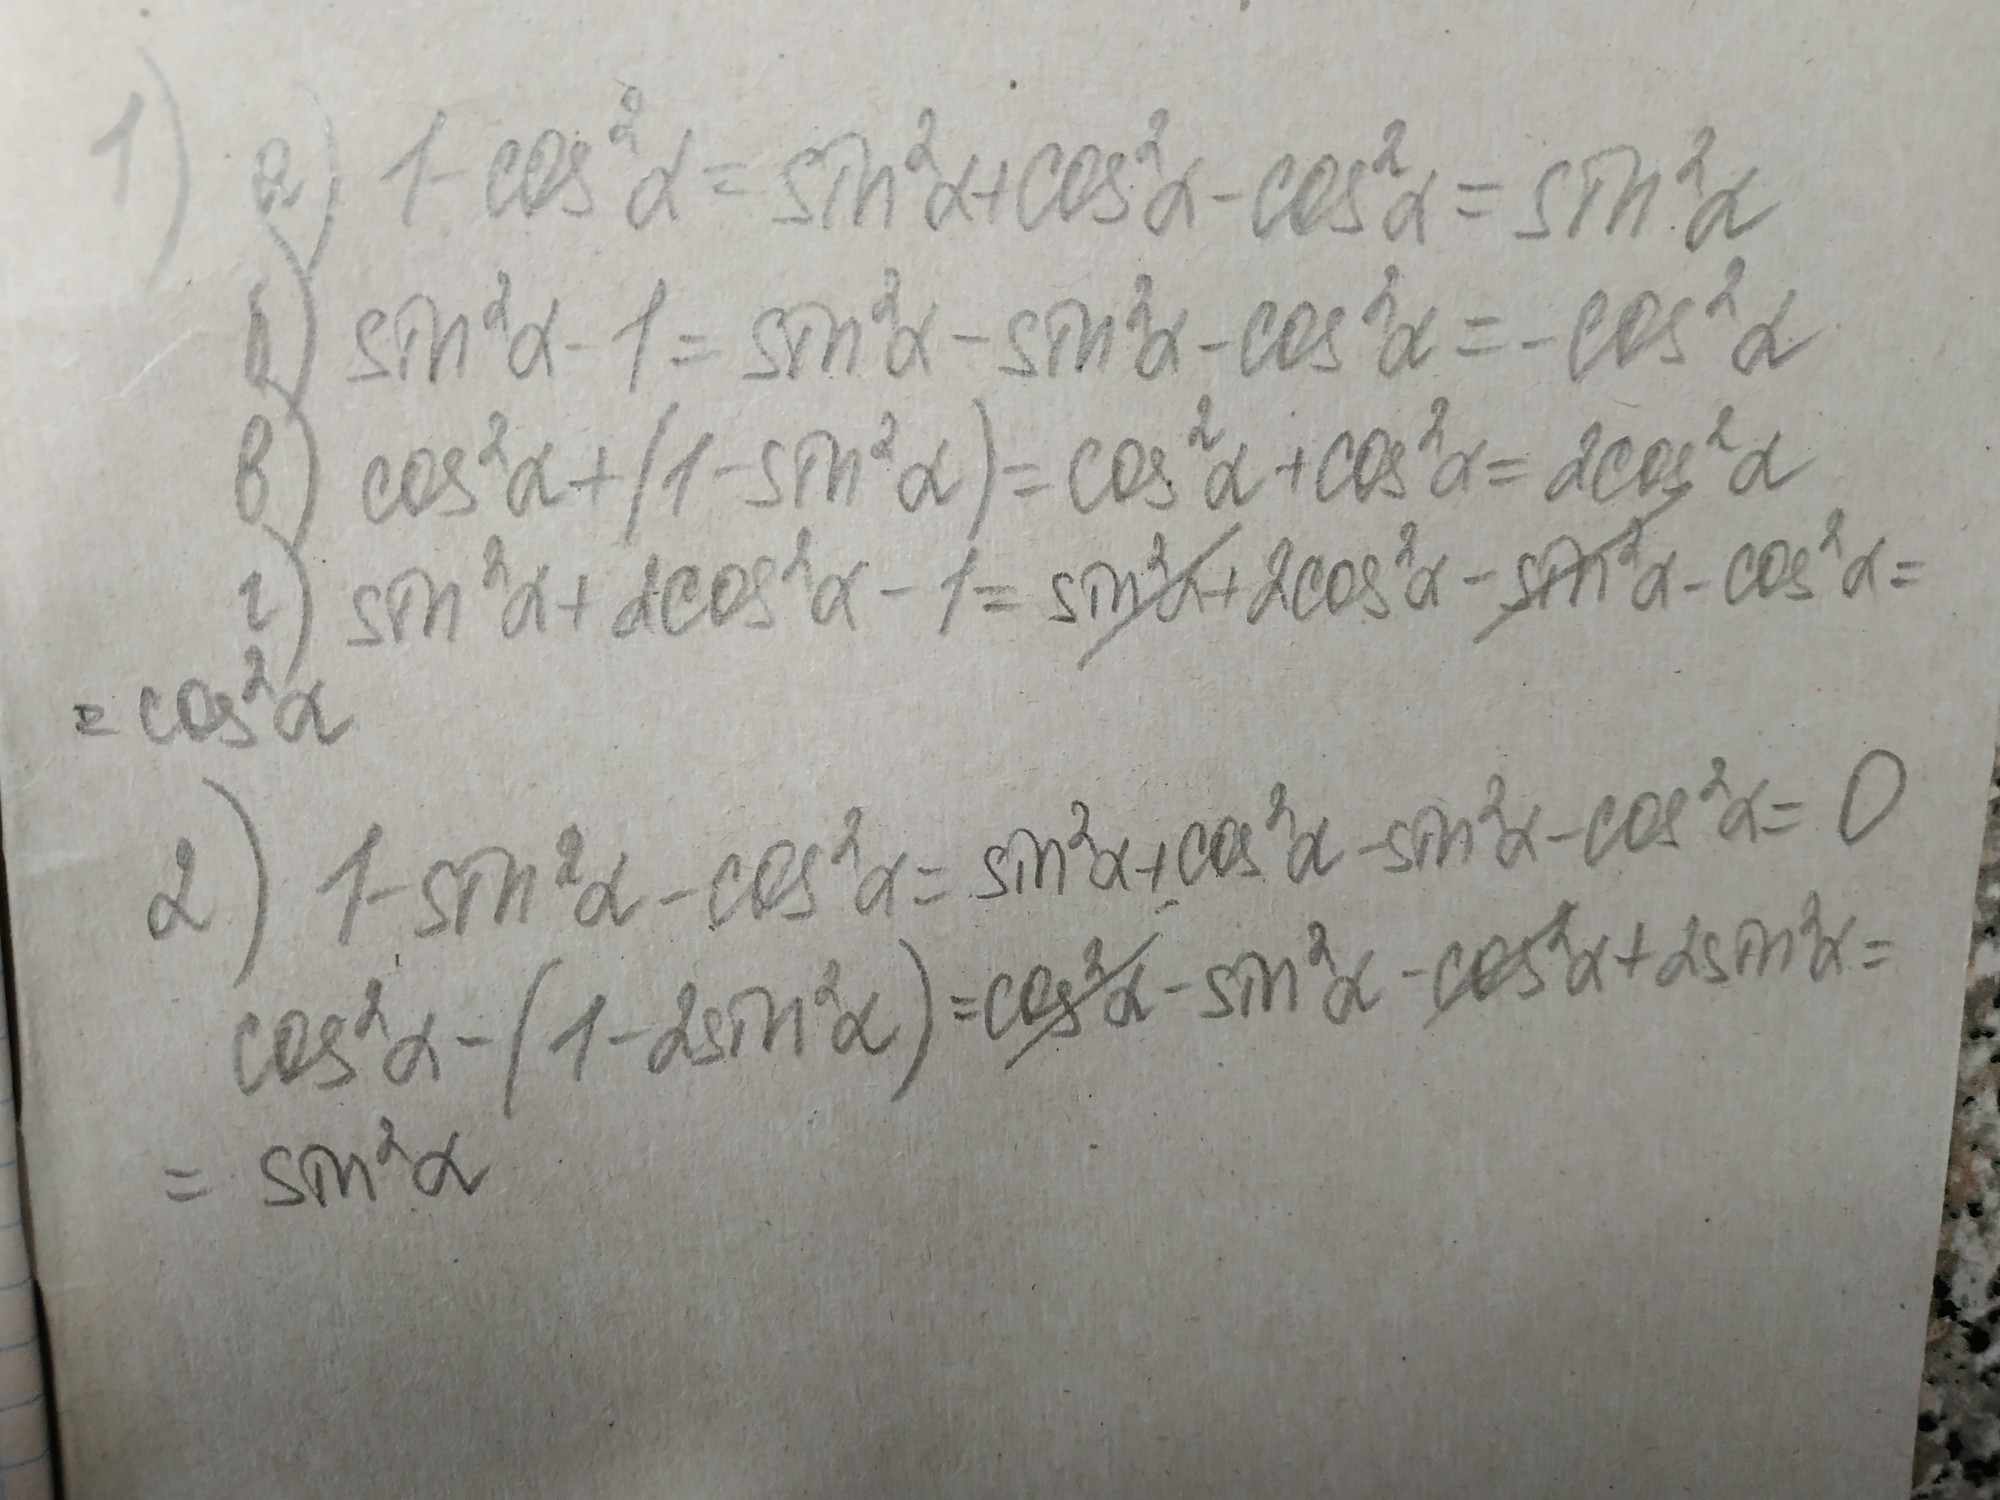 1) а) 1-cos²α=sin²α+cos²α-cos²α=sin²α
б) sin²α-1=sin²α-sin²α-cos²α=-cos²α
в) cos²α+(1-sin²α)=cos²α+cos²α=2cos²α
г) sin²α+2cos²α-1=sin²α+2cos²α-sin²α-cos²α=
=cos²α
2) 1-sin²α-cos²α=sin²α+cos²α-sin²α-cos²α=0
cos²α-(1-2sin²α)=cos²α-sin²α-cos²α+2sin²α=
=sin²α